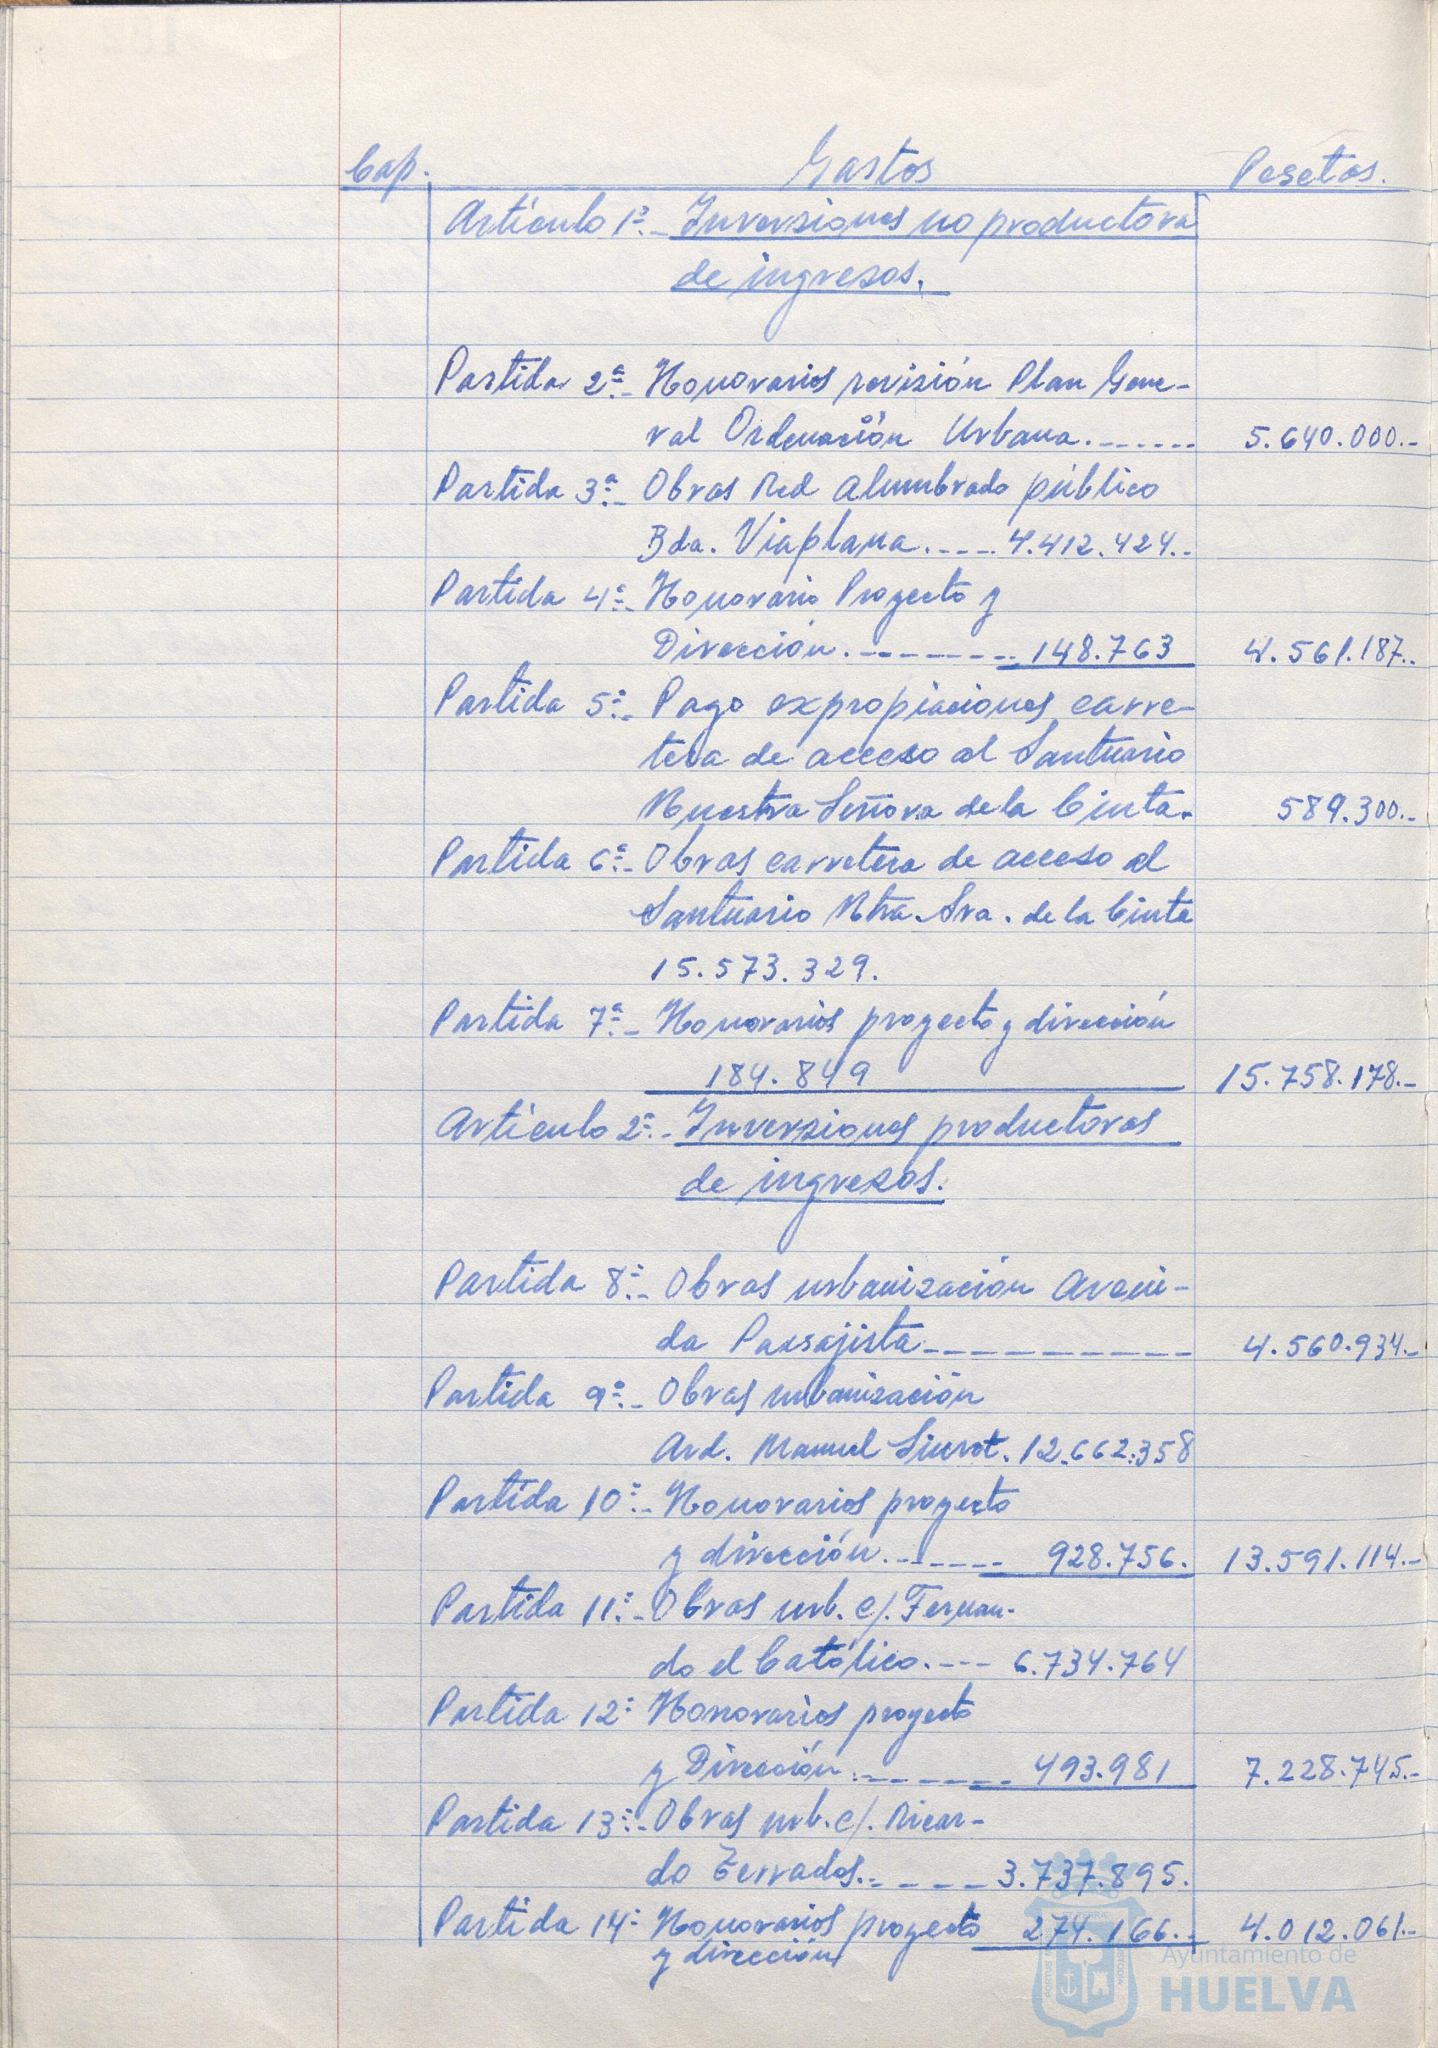 Cap. Gastos Pesetas.
Artículo 1º.- Inversiones no productora
de ingresos.
Partida 2ª.- Honorarios revisión Plan Gene-
ral Ordenación Urbana........ 5.640.000.-
Partida 3ª.- Obras Red alumbrado público
Bda. Viaplana..... 4.412.424..
Partida 4ª.- Honorario Proyecto y
Dirección.--------.. 148.763 4.561.187..
Partida 5ª.- Pago expropiaciones carre-
tera de acceso al Santuario
Nuestra Señora de la Cinta. 589.300.-
Partida 6ª.- Obras carretera de acceso al
Santuario Ntra. Sra. de la Cinta
15.573.329.
Partida 7ª.- Honorarios proyecto y dirección
184.849 15.758.178.-
Artículo 2º.- Inversiones productoras
de ingresos.
Partida 8ª.- Obras urbanización Aveni-
da Paisajista---------- 4.560.934.-
Partida 9ª.- Obras urbanización
Avd. Manuel Siurot. 12.662.358
Partida 10ª.- Honorarios proyecto
y dirección....---- 928.756. 13.591.114.-
Partida 11ª.- Obras urb. c/. Fernan-
do el Católico.--- 6.734.764
Partida 12ª Honorarios proyecto
y Dirección.------- 493.981 7.228.745.-
Partida 13ª.- Obras urb. c/. Ricar-
do Terrades.----- 3.737.895.
Partida 14ª Honorarios proyecto 274.166.- 4.012.061.-
y dirección
Ayuntamiento de
HUELVA